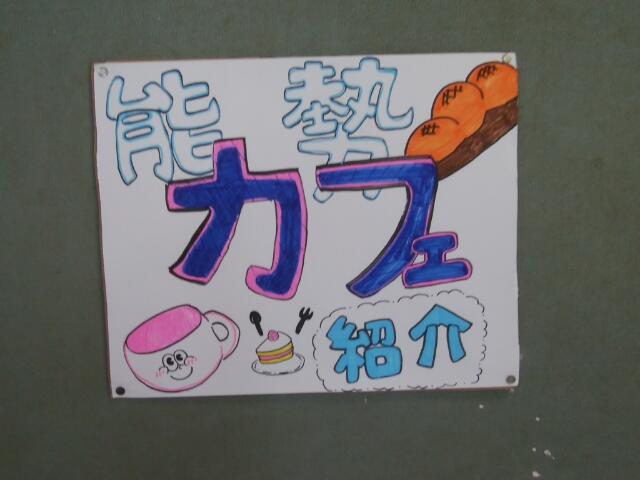 能勢
カフェ
紹介